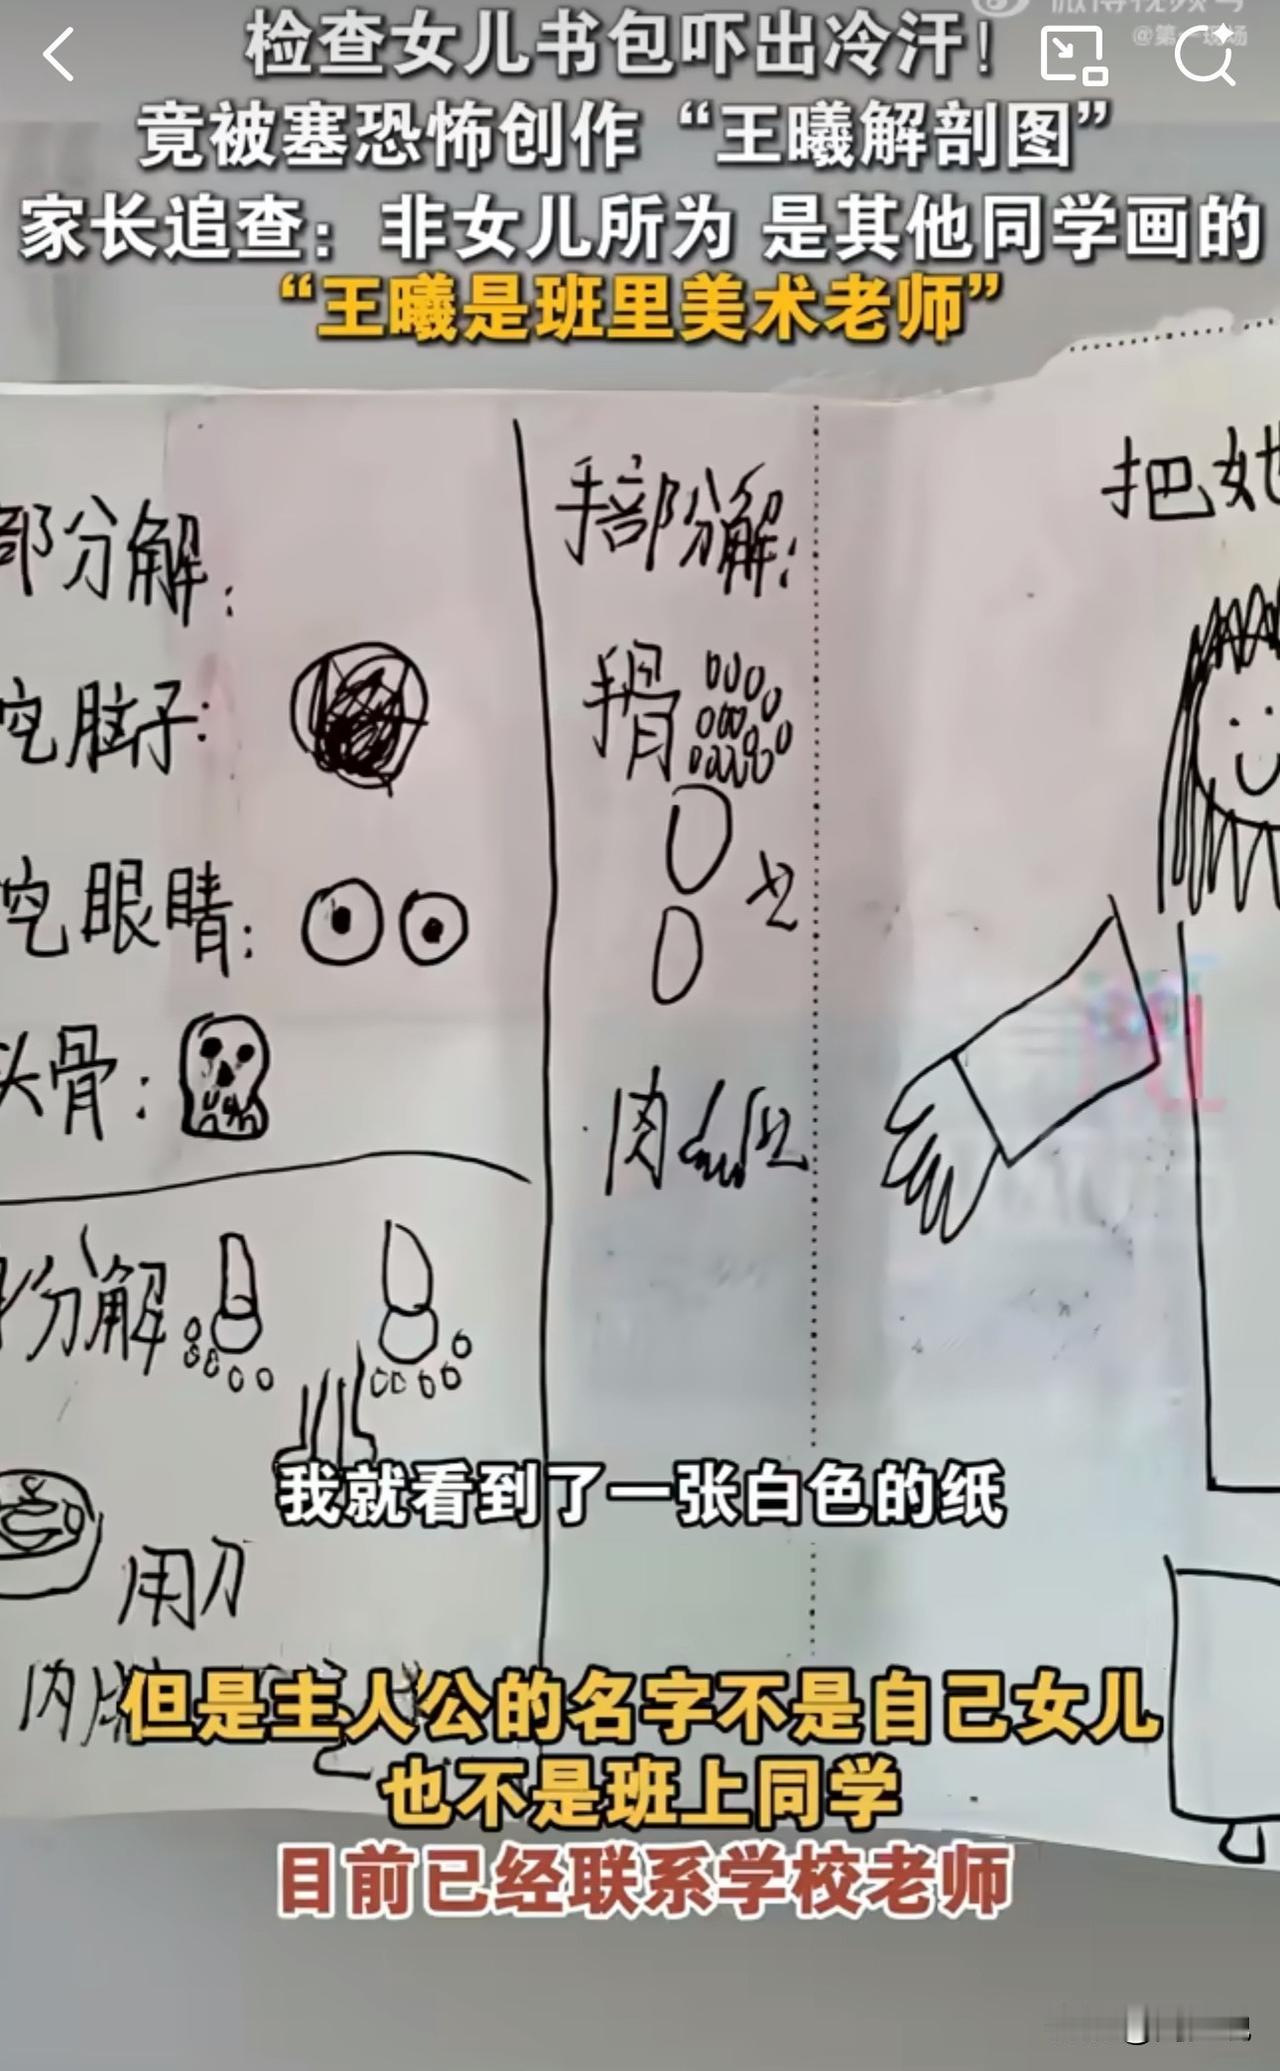 @第一现场
检查女儿书包吓出冷汗！
竟被塞恐怖创作“王曦解剖图”
家长追查：非女儿所为 是其他同学画的
“王曦是班里美术老师”
部分解：
挖脑子：
挖眼睛：
头骨：
分解
用刀
手部分解：
手骨
肉
把她
我就看到了一张白色的纸
但是主人公的名字不是自己女儿
也不是班上同学
目前已经联系学校老师